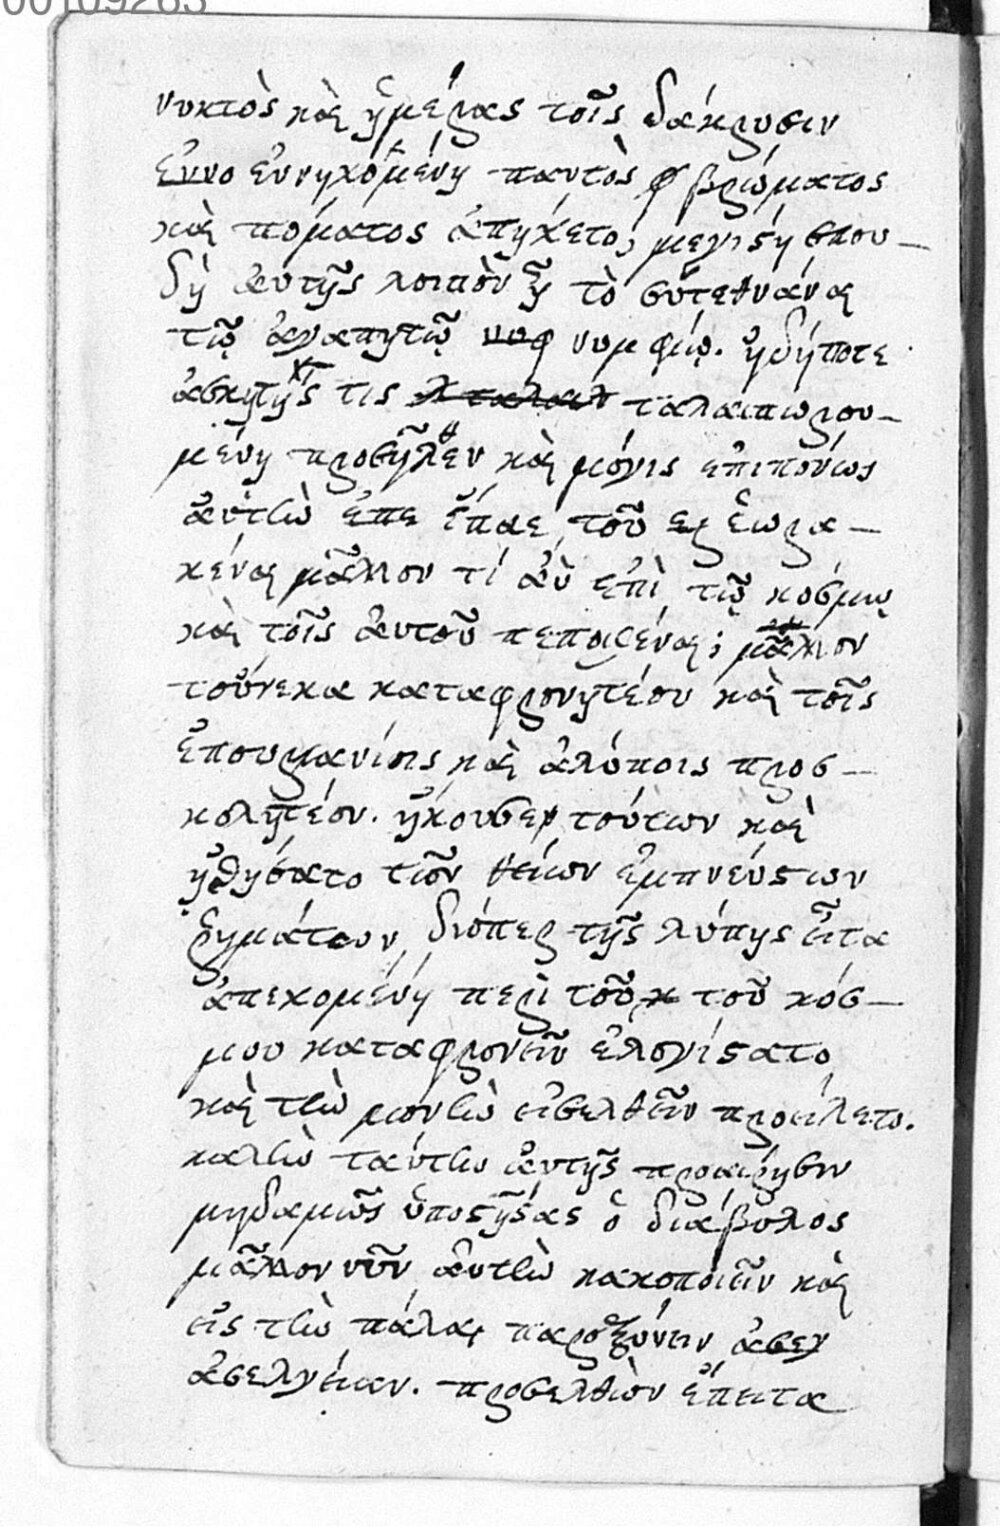 00109263
νυκτὸς καὶ ἡμέρας τοῖς δάκρυσιν
ἐννο ἐννηχομένη παντὸς βρώματος
καὶ πόματος ἀπηχετο, μεγίστη σπου–
δὴ αὐτῆς λοιπὸν ἦ τὸ συντεθνάναι
τῷ ἀγαπητῷ νυφ νυμφίῳ. ἡδήποτε
ἀσκητής τις ταλαιπωρου–
μένῃ προσῆλθεν καὶ μόγις ἐπιπόνως
αὐτὴν τοῦ ἑωρα–
κέναι μᾶλλον τί ἂν ἐπὶ τῷ κόσμῳ
καὶ τοῖς αὐτοῦ πεποιθέναι; μᾶλλον
τοὔνεκα καταφρονητέον καὶ τοῖς
ἐπουρανίοις καὶ ἀλύποις προσ–
κολητέον. ἤκουσεν τούτων καὶ
ᾐδήσατο τῶν θείων ἐμπνεύστων
ῥημάτων, διόπερ τῆς λύπης εἶτα
ἀπεχομένη περὶ τοῦ κ τοῦ κόσ–
μου καταφρονεῖν ἐλογίσατο
καὶ τὴν μονὴν εἰσελθεῖν προείλετο.
καλὴν ταύτην αὐτῆς προαίρησιν
μηδαμῶς ὑποστήσας ὁ διάβολος
μᾶλλον νῦν αὐτὴν κακοποιεῖν καὶ
εἰς τὴν πάλαι παροξύνειν ἀσεγ
ἀσελγείαν. προσελθὼν ἔπειτα